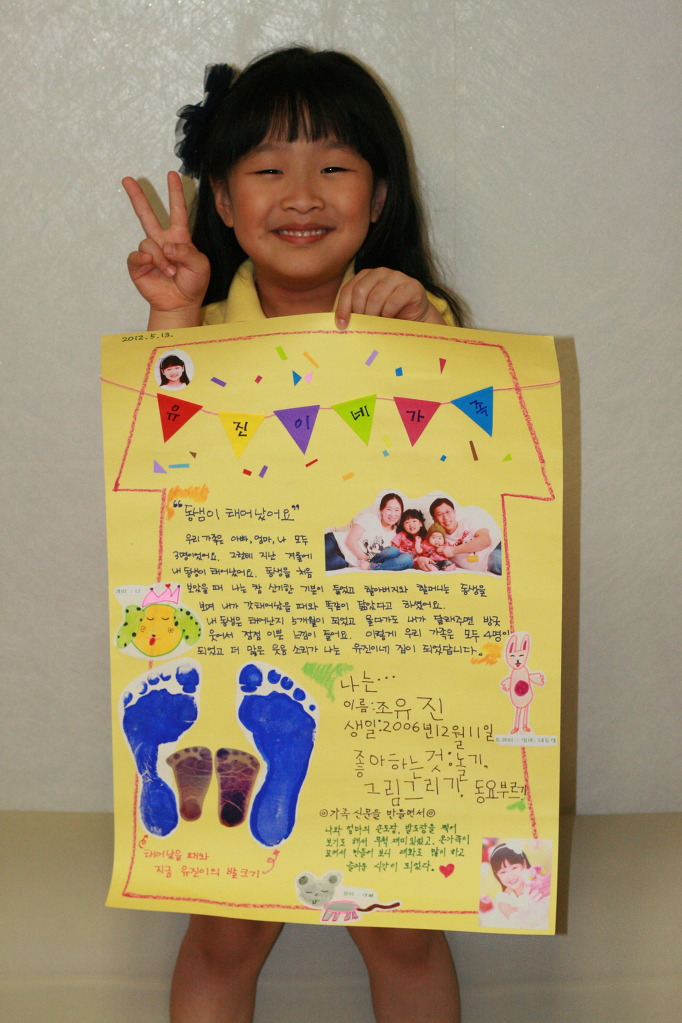 2012. 5. 13.
유진이네가족
"동생이 태어났어요"
우리 가족은 아빠, 엄마, 나 모두
3명이었어요. 그런데 지난 겨울에
내 동생이 태어났어요. 동생을 처음
보았을 때 나는 참 신기한 기분이 들었고 할아버지와 할머니는 동생을
보며 내가 갓 태어났을 때와 똑같이 닮았다고 하셨어요.
내 동생은 태어난지 5개월이 되었고 울다가도 내가 달래주면 방긋
웃어서 점점 이쁜 느낌이 들어요. 이렇게 우리 가족은 모두 4명이
되었고 더 많은 웃음 소리가 나는 유진이네 집이 되었답니다.
나는...
이름:조유진
생일:2006년12월11일
좋아하는것:놀기,
그림그리기, 동요부르기
◎가족 신문을 만들면서◎
나와 엄마의 손도장, 발도장을 찍어
보기도 해서 무척 재미있었고, 온가족이
모여서 만들어 보니 대화도 많이 하고
즐거운 시간이 되었다.
태어났을 때와
지금 유진이의 발크기